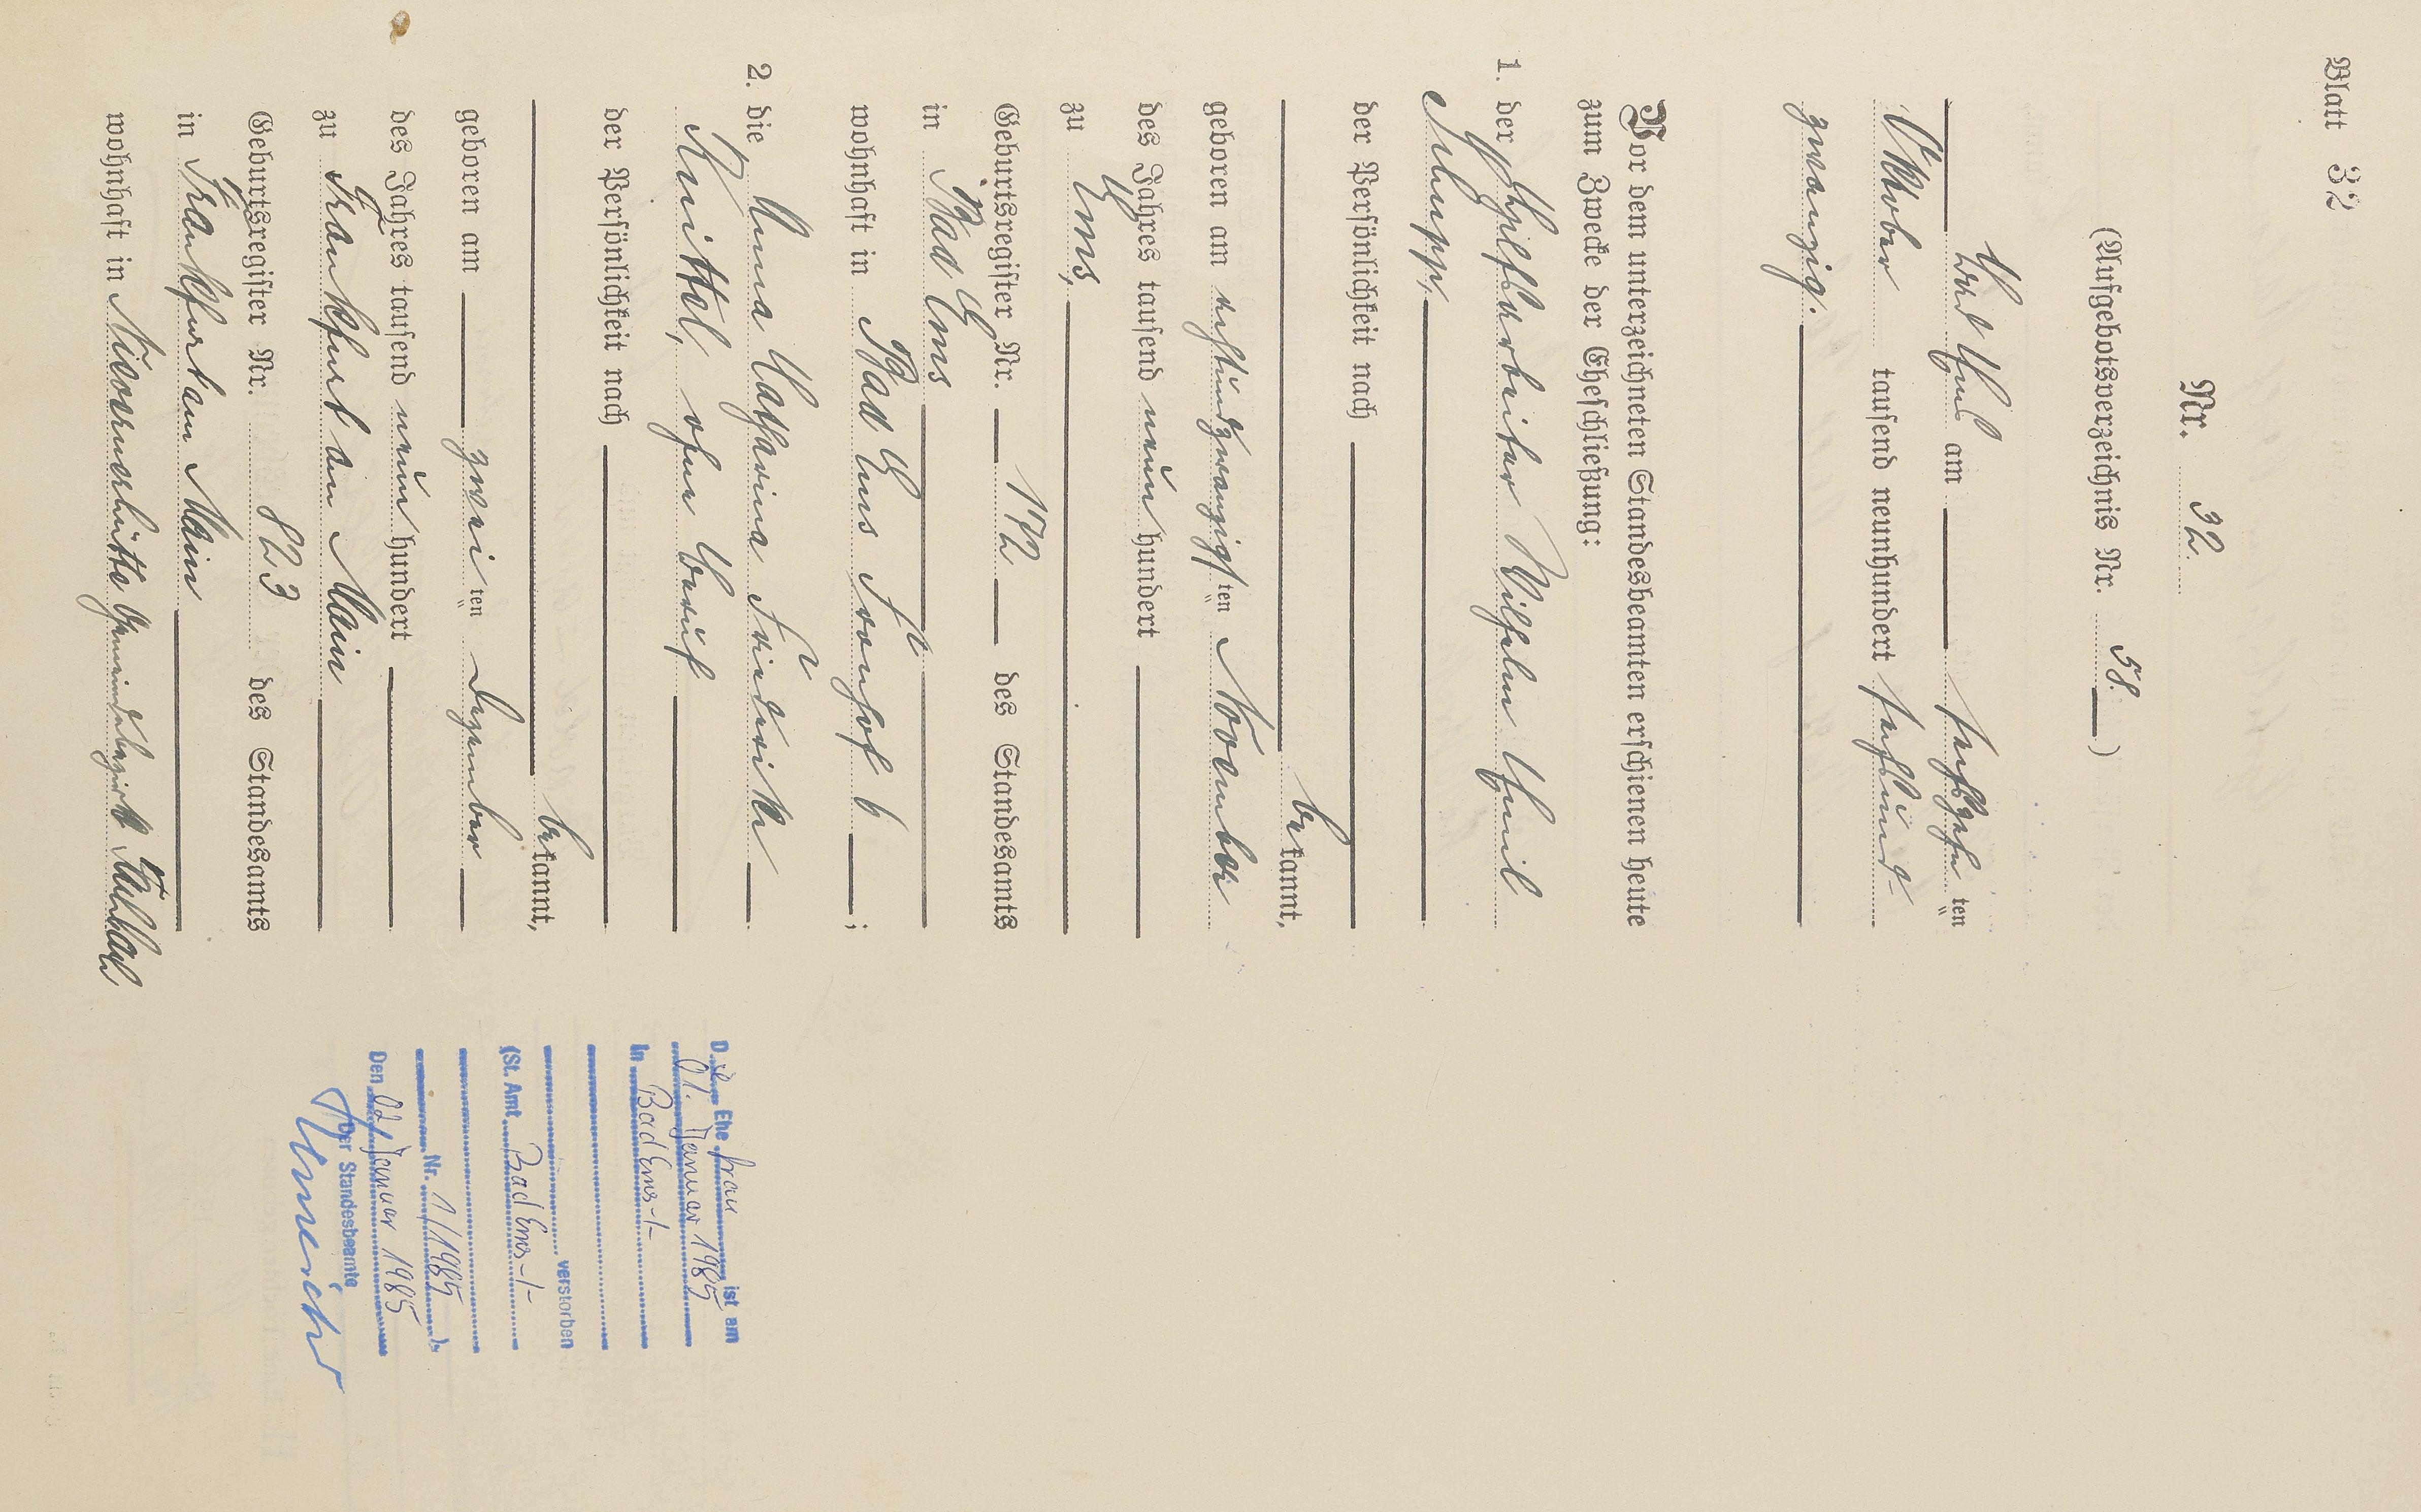 Blatt 32
Nr. 32.
(Aufgebotsverzeichnis Nr. 58.)
Bad Ems am sechszehn ten
Oktober tausend neunhundert sechsund-
zwanzig.
Vor dem unterzeichneten Standesbeamten erschienen heute
zum Zwecke der Eheschließung:
1. der Hilfsarbeiter Wilhelm Emil
Schupp,
der Persönlichkeit nach
bekannt,
geboren am achtundzwanzigsten November
des Jahres tausend neun hundert
zu Ems,
Geburtsregister Nr. 172 des Standesamts
in Bad Ems
wohnhaft in Bad Ems, 6 ;
2. die Anna Katharina Friederike
Knittel, ohne Beruf
der Persönlichkeit nach
bekannt,
geboren am zwei ten Dezember
des Jahres tausend neun hundert
zu Frankfurt am Main
Geburtsregister Nr. 823 des Standesamts
in Frankfurt am Main
wohnhaft in Nievernerhütte Gemeindebezirk Fachbach
Die Ehefrau ist am
01. Januar 1985
in Bad Ems -/-
verstorben
(St. Amt Bad Ems -/-
Nr. 1/1985 ).
Den 02. Januar 1985
Der Standesbeamte